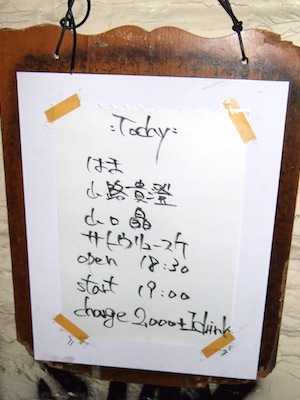 =Today=
はま
山路貴澄
山口晶
サトウリュースケ
open 18:30
start 19:00
charge 2,000+1drink